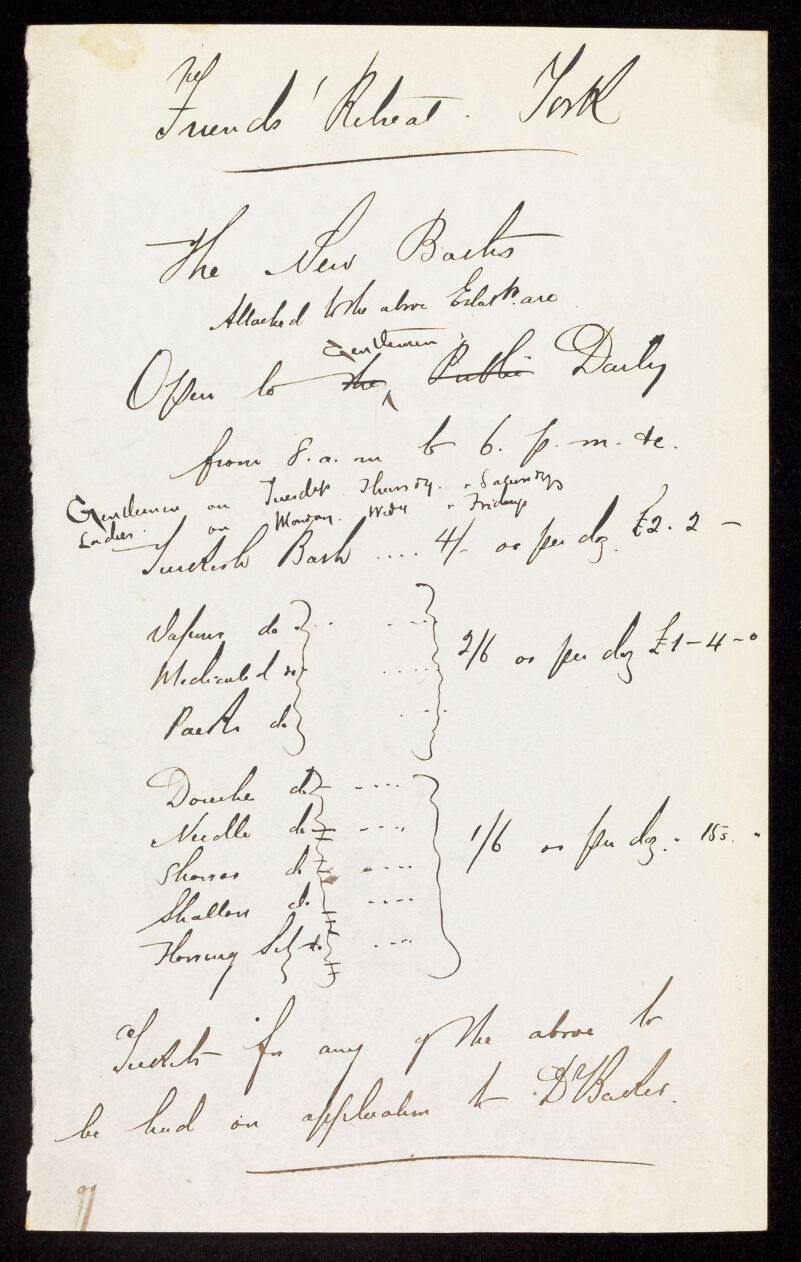 Friends' Retreat. York
The New Baths
Attached to the above Establt. are
Gentlemen
Open to the Public Daily
from 8. a. m to 6. p. m. &c.
Gentlemen on Tuesdys Thursdy. & Saturdys
Ladies. on Monday. Wedy & Fridays
Turkish Bath .... 4/- or per doz. £2. 2 -
Vapour do
Medicated do
2/6 or per doz £1-4-0
Packs do
Douche do ....
Needle do ....
1/6 or per doz. 15s.
Shower do ....
Shallow do ....
Flowing Sitz do ...
Tickets for any of the above to
be had on application to Dr Baker.